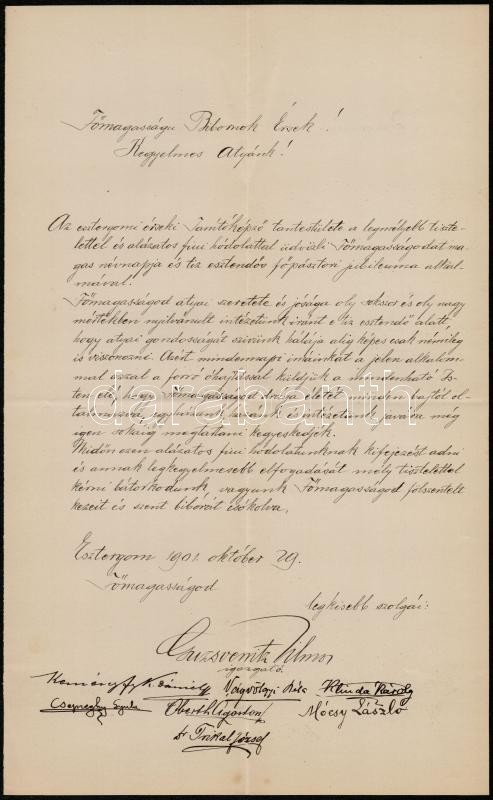 Főmagasságu Bibornok Érsek!
Kegyelmes Atyánk!
Az esztergomi érseki Tanítóképző tantestülete a legmélyebb tisz-
telettel és alázatos fiui hódolattal üdvözli Főmagasságodat ma-
gas névnapja és tíz esztendőv főpásztori jubileuma alkal-
mával.
Főmagasságod atyai szeretete és jósága oly sokszor és oly nagy
mértékben nyilvánult intézetünk iránt e tíz esztendő alatt,
hogy atyai gondosságát szivünk hálája alig képes csak némileg
is viszonozni. Azért mindennapi imáinkat a jelen alkalom-
mal azzal a forró óhajtással küldjük a mindenható Is-
ten elé, hogy Főmagasságod drága életét minden bajtól ol-
talmazva, egyházunk, hazánk és intézetünk javára még
igen sokáig megtartani kegyeskedjék.
Midőn ezen alázatos fiui hódolatunknak kifejezést adni
és annak legkegyelmesebb elfogadását mély tisztelettel
kérni bátorkodunk, vagyunk Főmagasságod fölszentelt
kezeit és szent biborát csókolva,
Esztergom 1901. október 29.
Főmagasságod
legkisebb szolgái:
Guzsvenitz Vilmos
igazgató
Bela Klinda Károly
Csepreghy Gyula Oberth Agoston Mócsy László
Dr Trikal József
darabanth